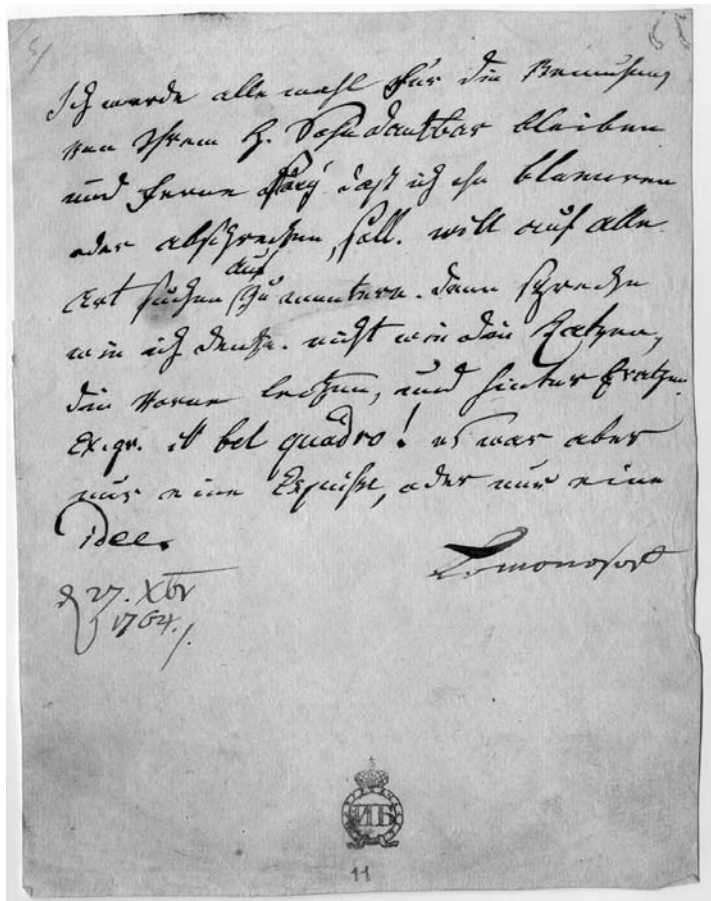 Ich werde alle mahl für die Bemühung
von Ihrem H. Sohn dankbar bleiben
und ferne daß ich ihn
oder abschrecken soll. will auf alle
auf
Art suchen zu muntern. denn spreche
wie ich denke. nicht wie die Katzen,
die vorne lecken, und hinter kratzen.
Ex. gr. il bel quadro! es war aber
nur eine Esquisse, oder nur eine
idee.
Lomonosow
d 27. Xbr
1764.
ИПБ
11